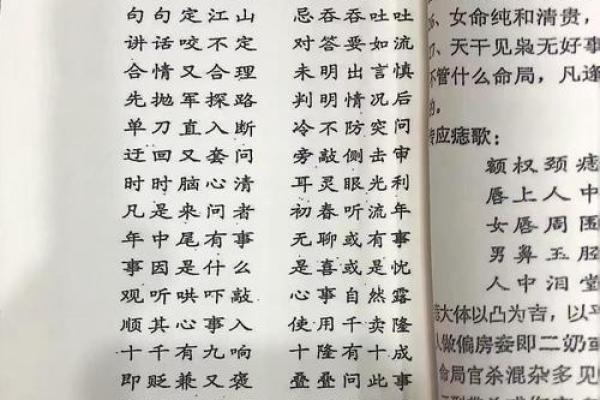 句句定江山
讲话咬不定
合情又合理
先抛军探路
单刀直入断
迂回又套问
时时脑心清
凡是来问者
年中尾有事
事因是什么
观听哄吓敲
顺其心事入
十千有九响
即贬兼又褒
忌吞吞吐吐
对答要如流
未明出言慎
判明情况后
冷不防突问
旁敲侧击审
耳灵眼光利
初春听流年
无聊或有事
是喜或是忧
心事自然露
使用千卖隆
十隆成
叠叠有此事
、女命纯和清贵，
、天干见枭无好事
不管什么命局，凡逢
的。
应痣歌：
额权颈痣
唇上人中
女唇周围
男鼻玉胫
人中泪堂
大体以凸为吉，以平
人做偏房妾即二奶或
命局官杀混杂多见